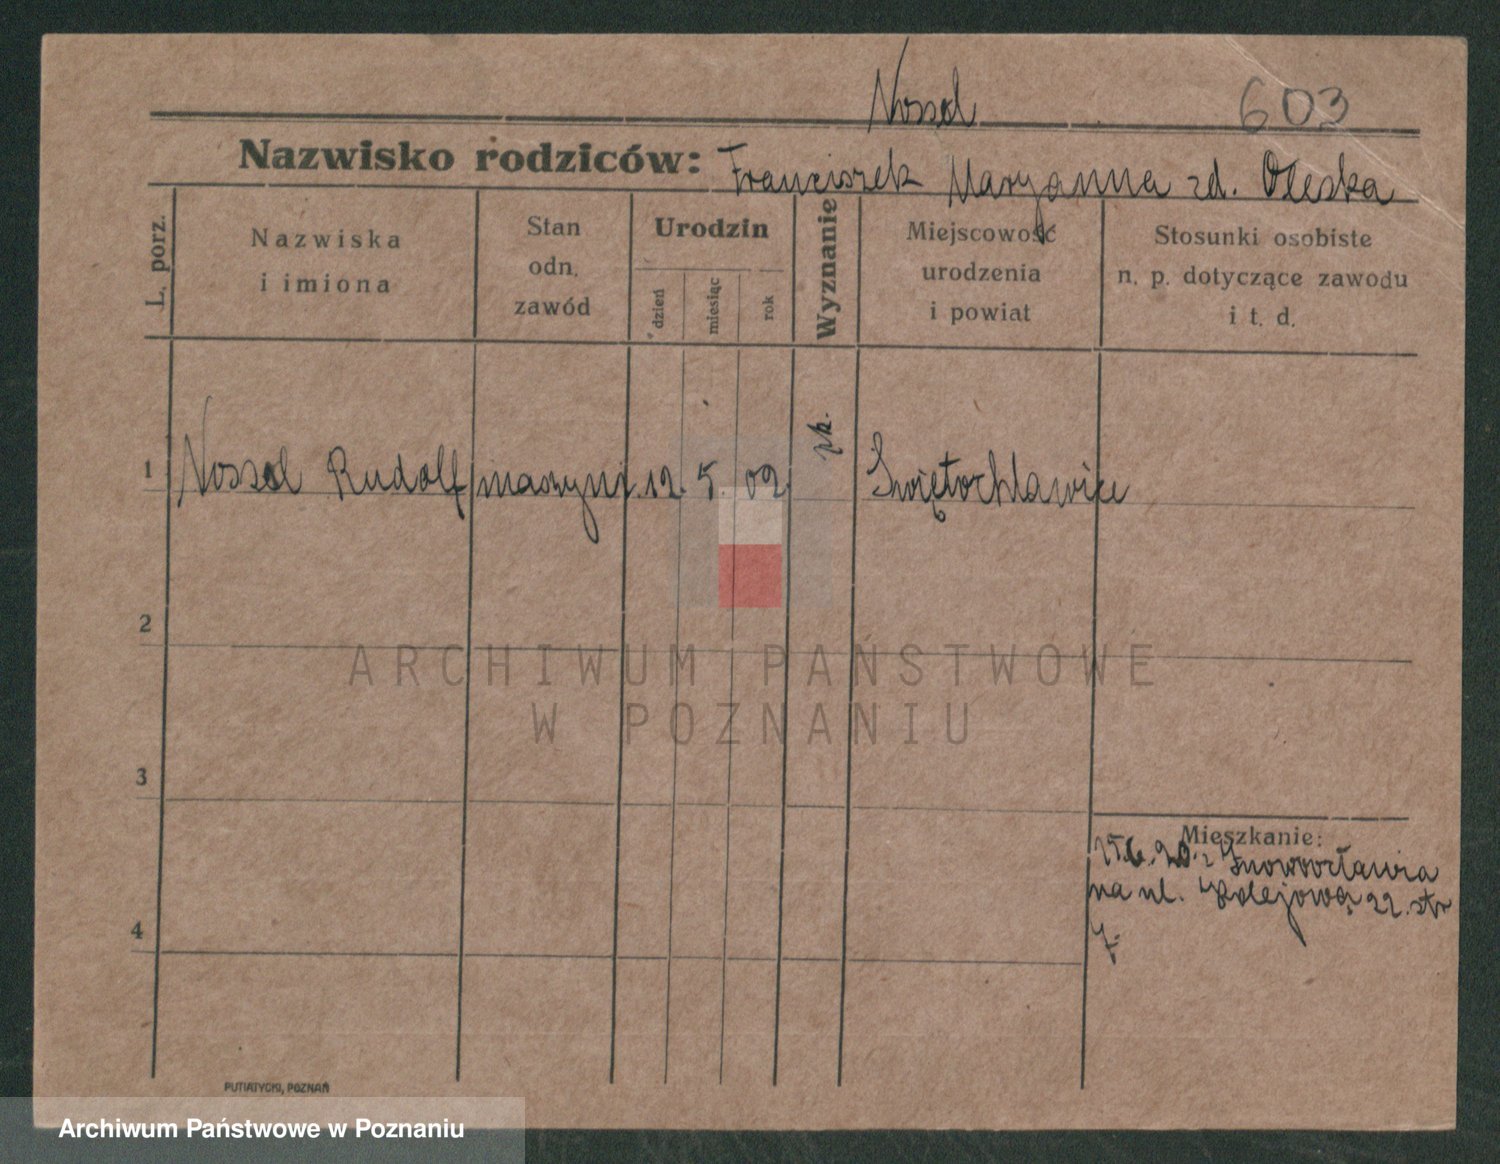 Nossol
603
Nazwisko rodziców: Franciszek Maryanna zd. Oleska
L. porz.
Nazwiska
i imiona
Stan
odn.
zawód
Urodzin
dzień
miesiąc
rok
Wyznanie
Miejscowość
urodzenia
i powiat
Stosunki osobiste
n. p. dotyczące zawodu
i t. d.
1 Nossol Rudolf maszyni. 12. 5. 02 rk. Świętochławice
2
ARCHIWUM PAŃSTWOWE
W POZNANIU
3
Mieszkanie:
20. z Inowrocławia
na ul. Kolejową 22. str
4
PUTIATYCKI, POZNAŃ
Archiwum Państwowe w Poznaniu